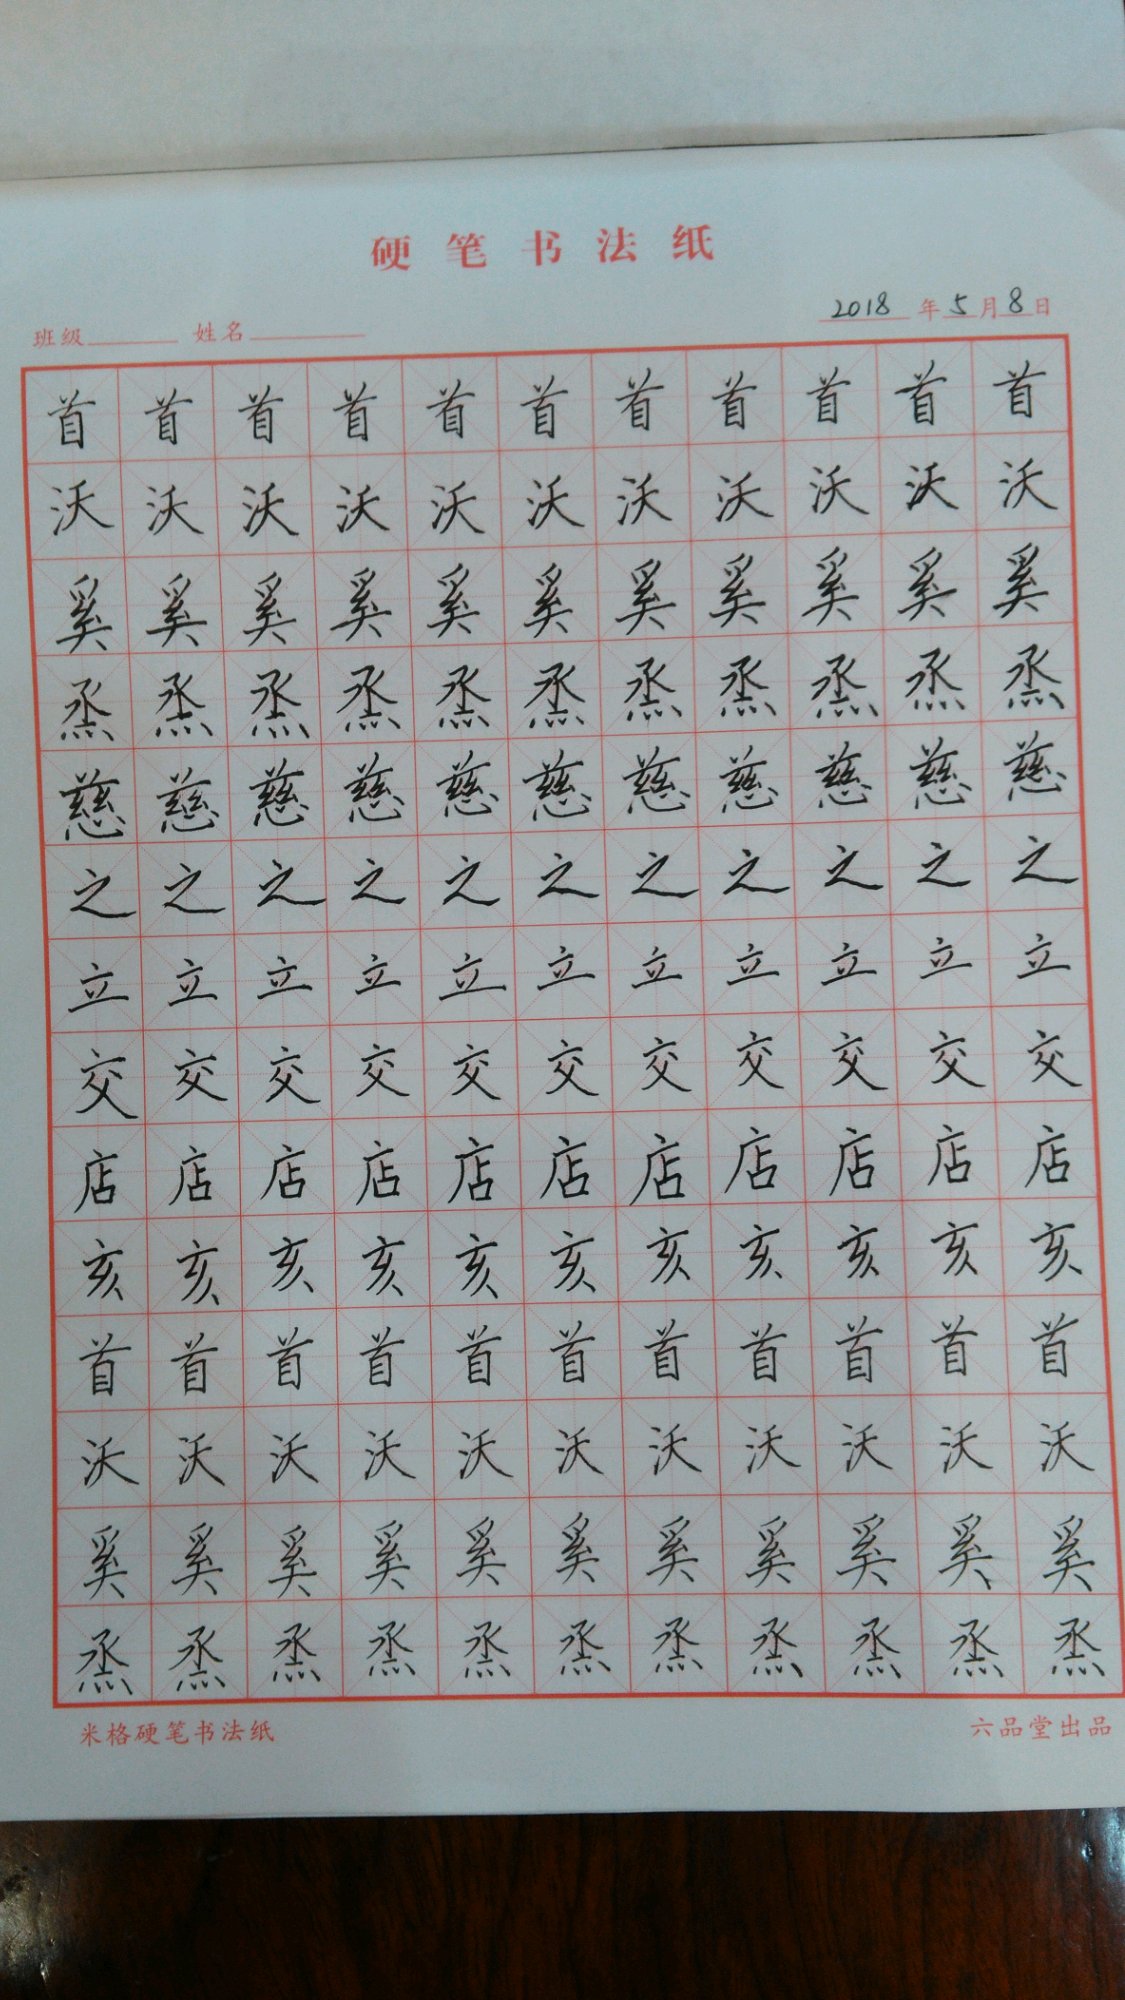 硬笔书法纸
班级 姓名 2018年5月8日
首首首首首首首首首首首
沃沃沃沃沃沃沃沃沃沃沃
奚奚奚奚奚奚奚奚奚奚奚
烝烝烝烝烝烝烝烝烝烝烝
慈慈慈慈慈慈慈慈慈慈慈
之之之之之之之之之之之
立立立立立立立立立立立
交交交交交交交交交交交
店店店店店店店店店店店
亥亥亥亥亥亥亥亥亥亥亥
首首首首首首首首首首首
沃沃沃沃沃沃沃沃沃沃沃
奚奚奚奚奚奚奚奚奚奚奚
烝烝烝烝烝烝烝烝烝烝烝
米格硬笔书法纸 六品堂出品